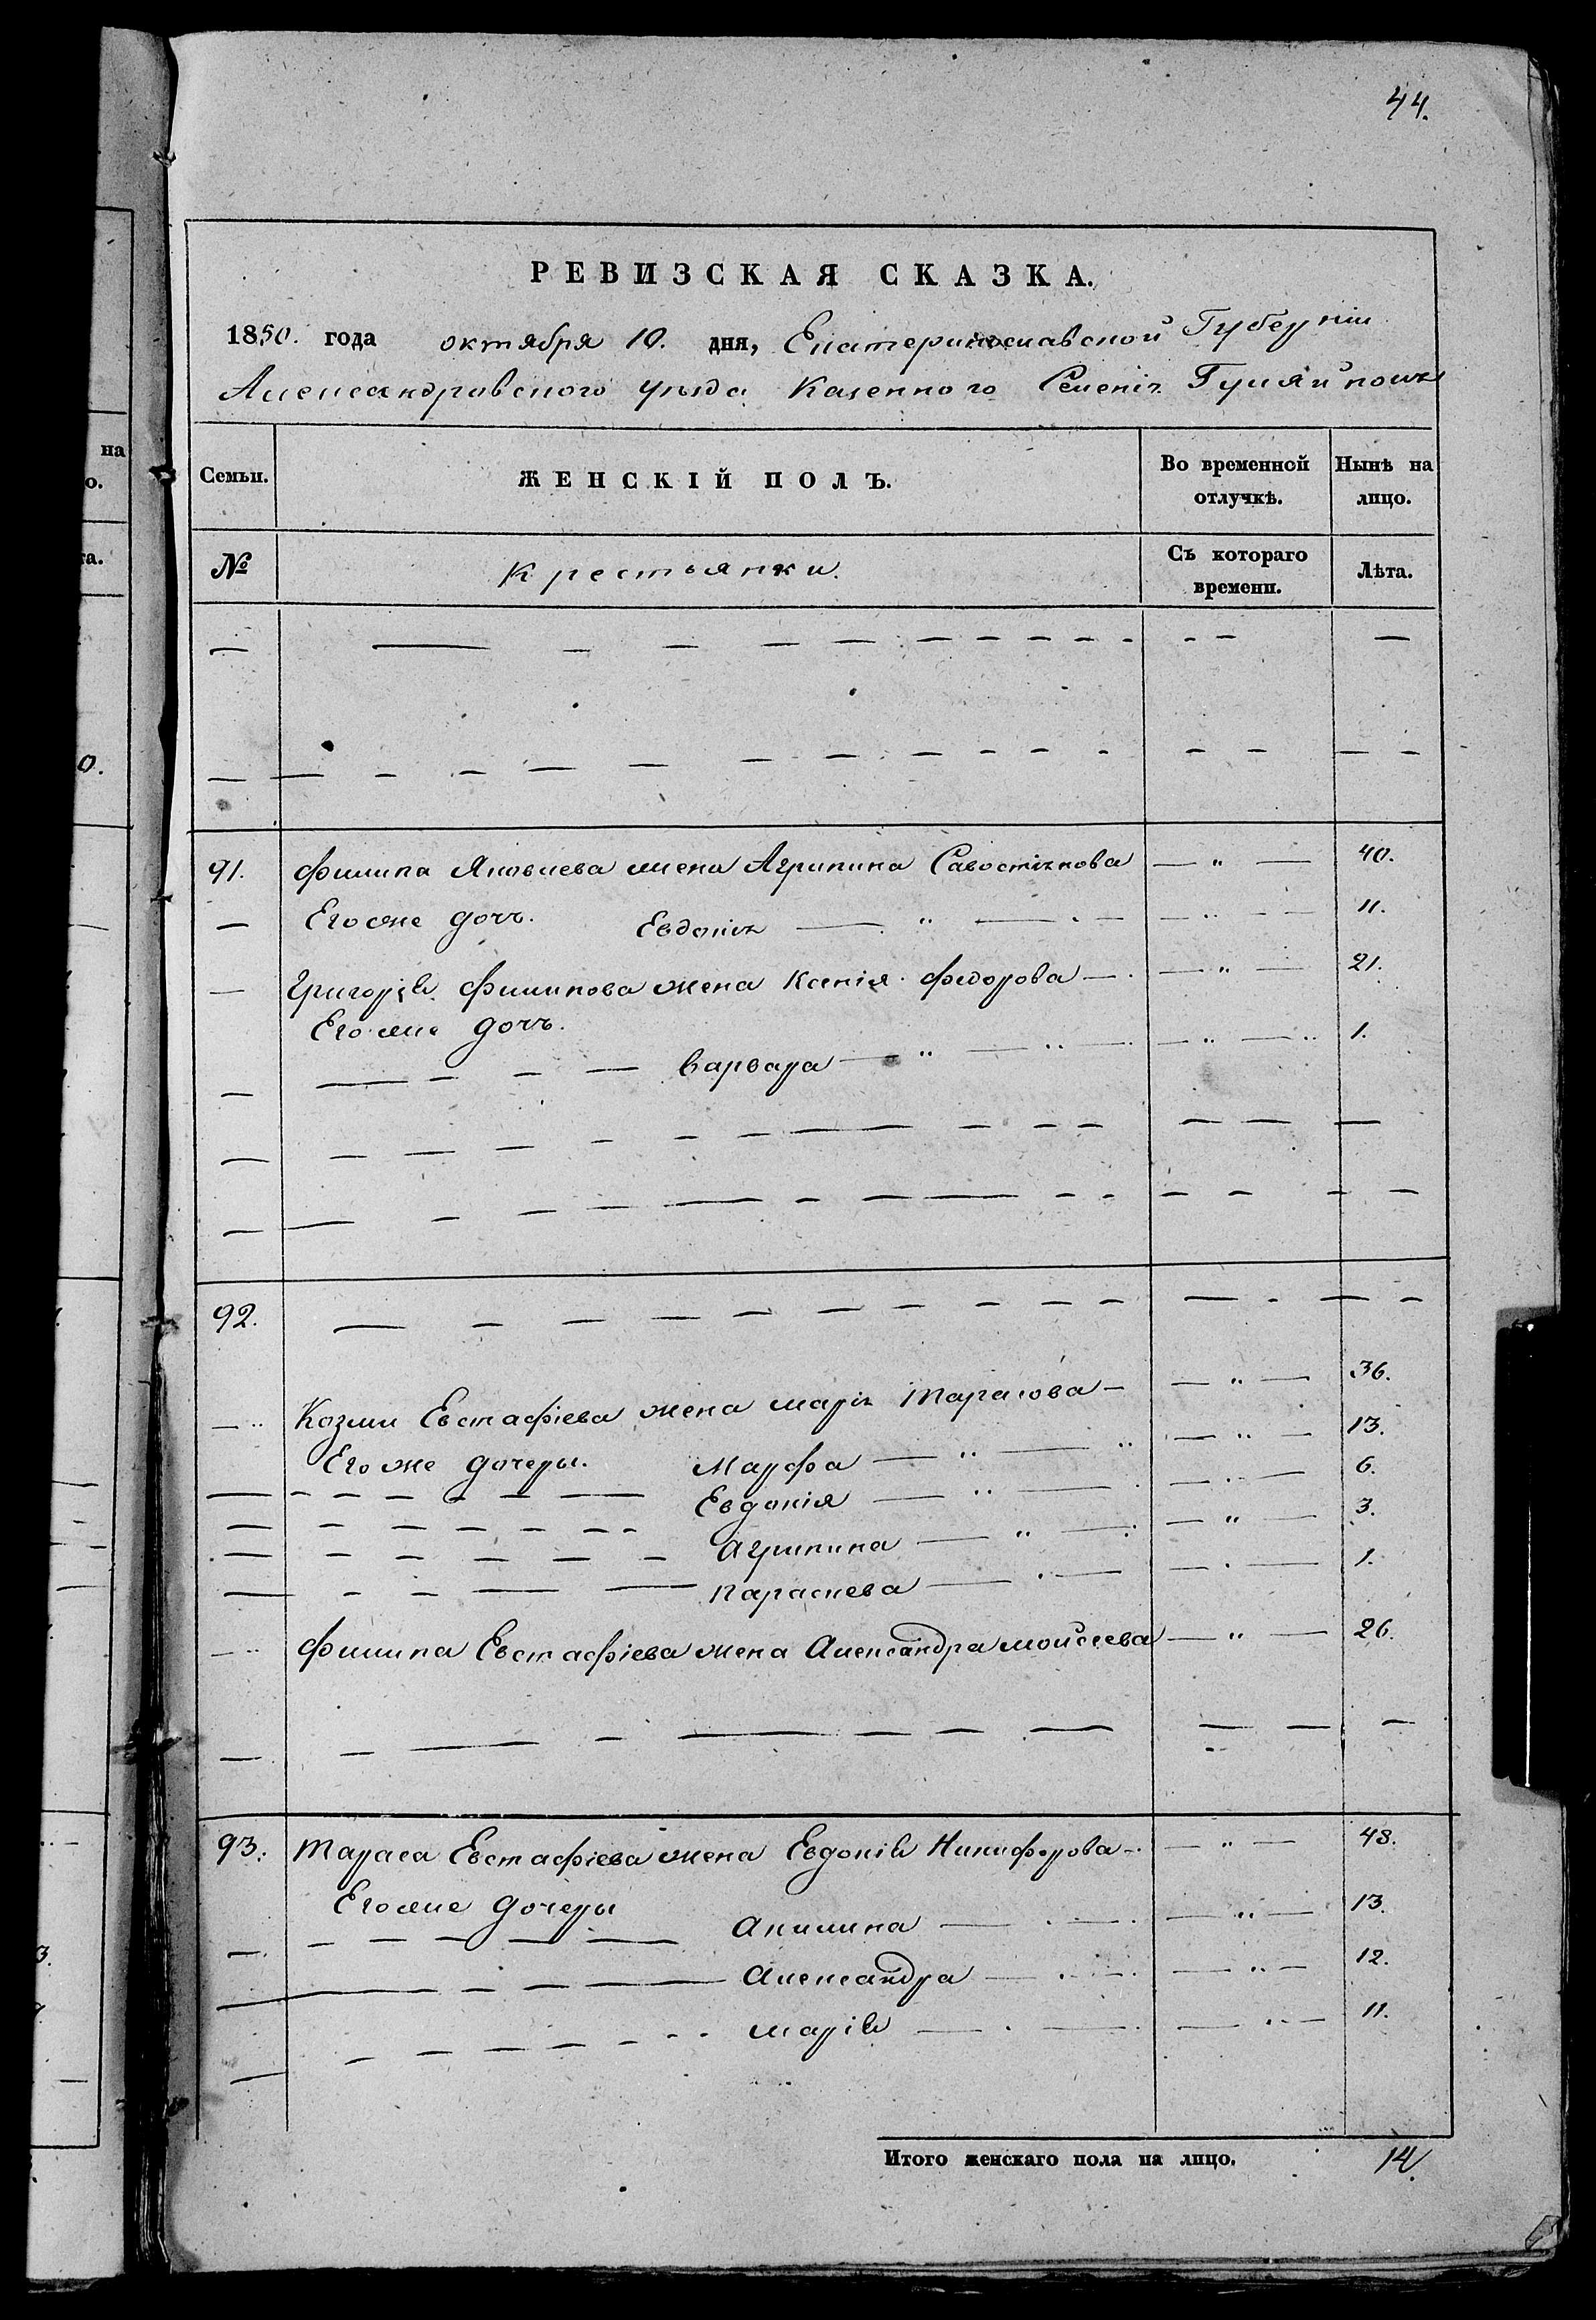 44.
РЕВИЗСКАЯ СКАЗКА.
1850. года октября 10. дня, Екатеринославской Губерніи
Александровского уѣзда Казенного Селенія Гуляйполя
Семьи. ЖЕНСКІЙ ПОЛЪ. Во временной отлучкѣ. Нынѣ на лицо.
№ Крестьянки. Съ котораго времени. Лѣта.
91. Филипа Яковлева жена Агрипина Савостіянова — " — 40.
— Его же дочь. Евдокія — " — 11.
— Григорія Филипова жена Ксенія Федорова — " — 21.
Его же дочь.
— Варвара — " — 1.
92.
— Козми Евстафіева жена Марія Тарасова — " — 36.
Его же дочеры. Марфа — " — 13.
— Евдокія — " — 6.
— Агрипина — " — 3.
— Параскева — 1.
— Филипа Евстафіева жена Александра Мойсеева — " — 26.
93. Тараса Евстафіева жена Евдокія Никифорова — " — 48.
Его же дочеры
— Акилина — " — 13.
— Александра — " — 12.
— Марія — 11.
Итого женскаго пола на лицо. 14.
на
о.
та.
0.